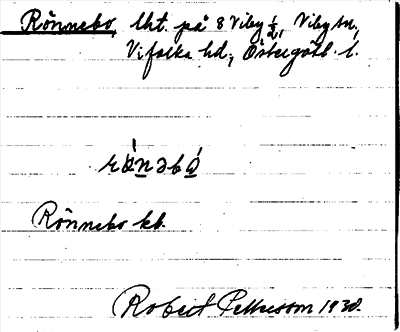 Rönnebo, lht. på 8 Viby ½, Viby sn,
Vifolka hd., Östergötl. l.
Rönnebo kb.
Robert Pettersson 1930.